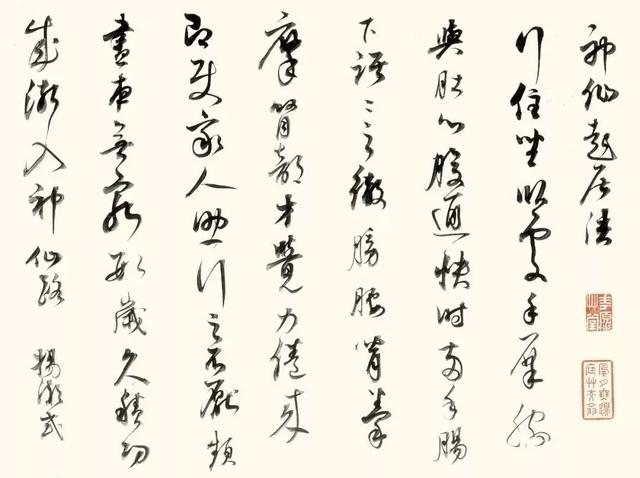 神仙起居法
行住坐臥處手摩脅
與肚心腹通快時兩手腸
下踞〻之徹膀腰背拳
摩腎部才覺力倦來
即使家人助行之不厭頻
晝夜無窮數歲久積功
成漸入神仙路 楊凝式